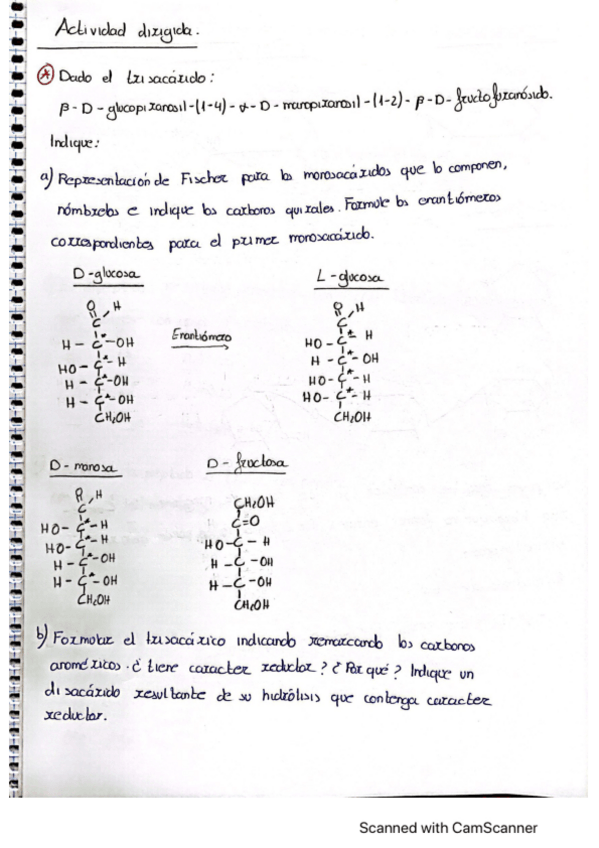 Actividad dirigida.
* Dado el trisacárido:
β - D - glucopiranosil - (1-4) - α - D - manopiranosil - (1-2) - β - D - fructofuranósido.
Indique:
a) Representación de Fischer para los monosacáridos que lo componen,
nómbrelos e indique los carbonos quirales. Formule los enantiómeros
correspondientes para el primer monosacárido.
D-glucosa
L-glucosa
O H
C
H - C* - OH
HO - C* - H
H - C* - OH
H - C* - OH
CH2OH
Enantiómero
O H
C
HO - C* - H
H - C* - OH
HO - C* - H
HO - C* - H
CH2OH
D - manosa
D - fructosa
O H
C
HO - C* - H
HO - C* - H
H - C* - OH
H - C* - OH
CH2OH
CH2OH
C=O
HO - C - H
H - C - OH
H - C - OH
CH2OH
b) Formular el trisacárico indicando remarcando los carbonos
anoméricos. ¿tiene caracter reductor? ¿Por qué? Indique un
disacárido resultante de su hidrólisis que contenga caracter
reductor.
Scanned with CamScanner